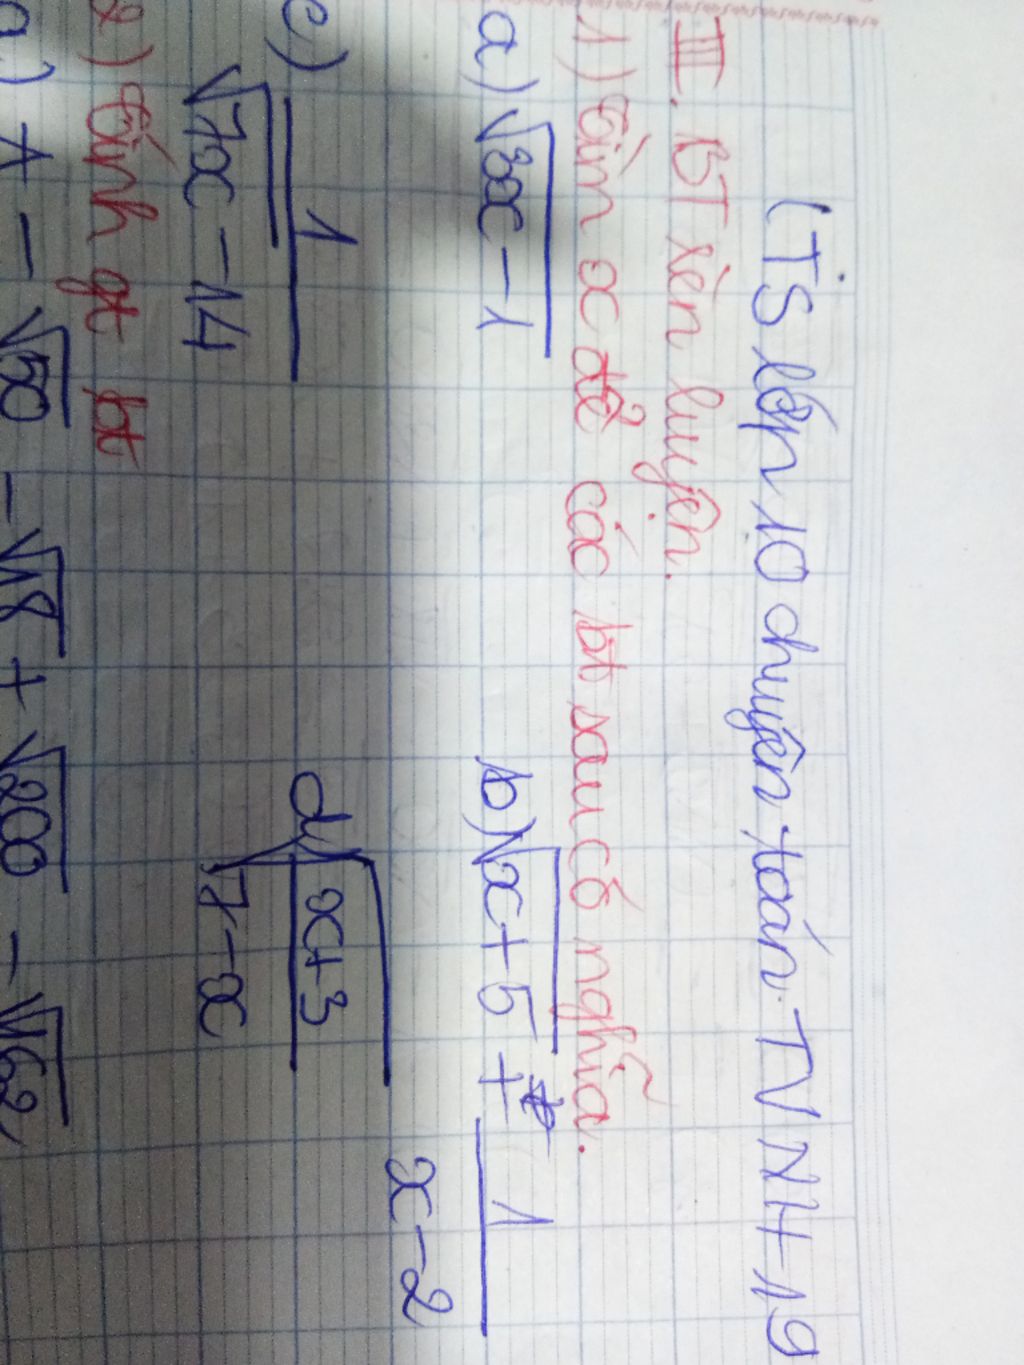 (TS lớp 10 chuyên toán TVNH-19
III. BT rèn luyện.
1) tìm x để các bt sau có nghĩa.
a) √(3x-1) b) √(x+5) + 1/(x-2)
c) 1/(√7x-14) d) √((x+3)/(7-x))
2) tính gt bt
A = √50 - √18 + √200 - √162